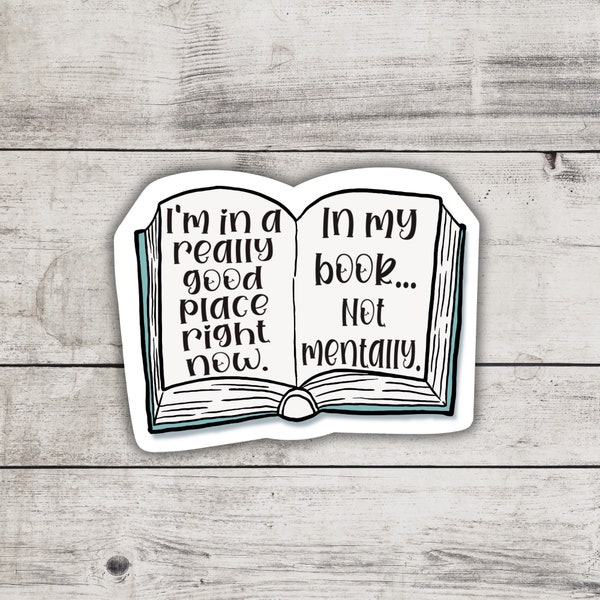 I'm in a
really
good
place
right
now.
In my
book...
Not
mentally.